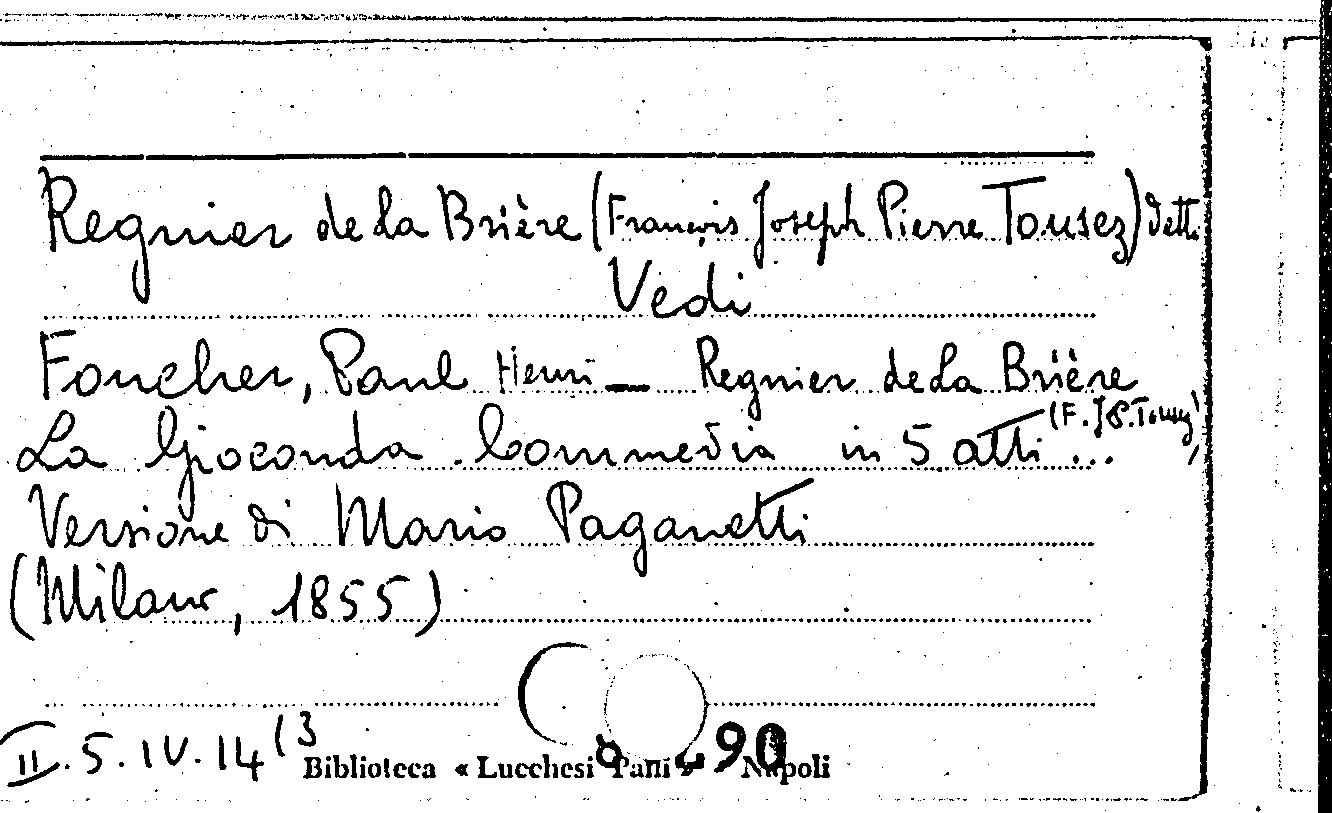 Regnier de la Brière (François Joseph Pierre Tousez) dett.
Vedi
Foucher, Paul Henri — Regnier de la Brière
(F. J. P. Tousez)
La Gioconda. Commedia in 5 atti ...
Versione di Mario Paganetti
(Milano, 1855)
II. 5. IV. 14 (3
Biblioteca « Lucchesi Palli » Napoli
90